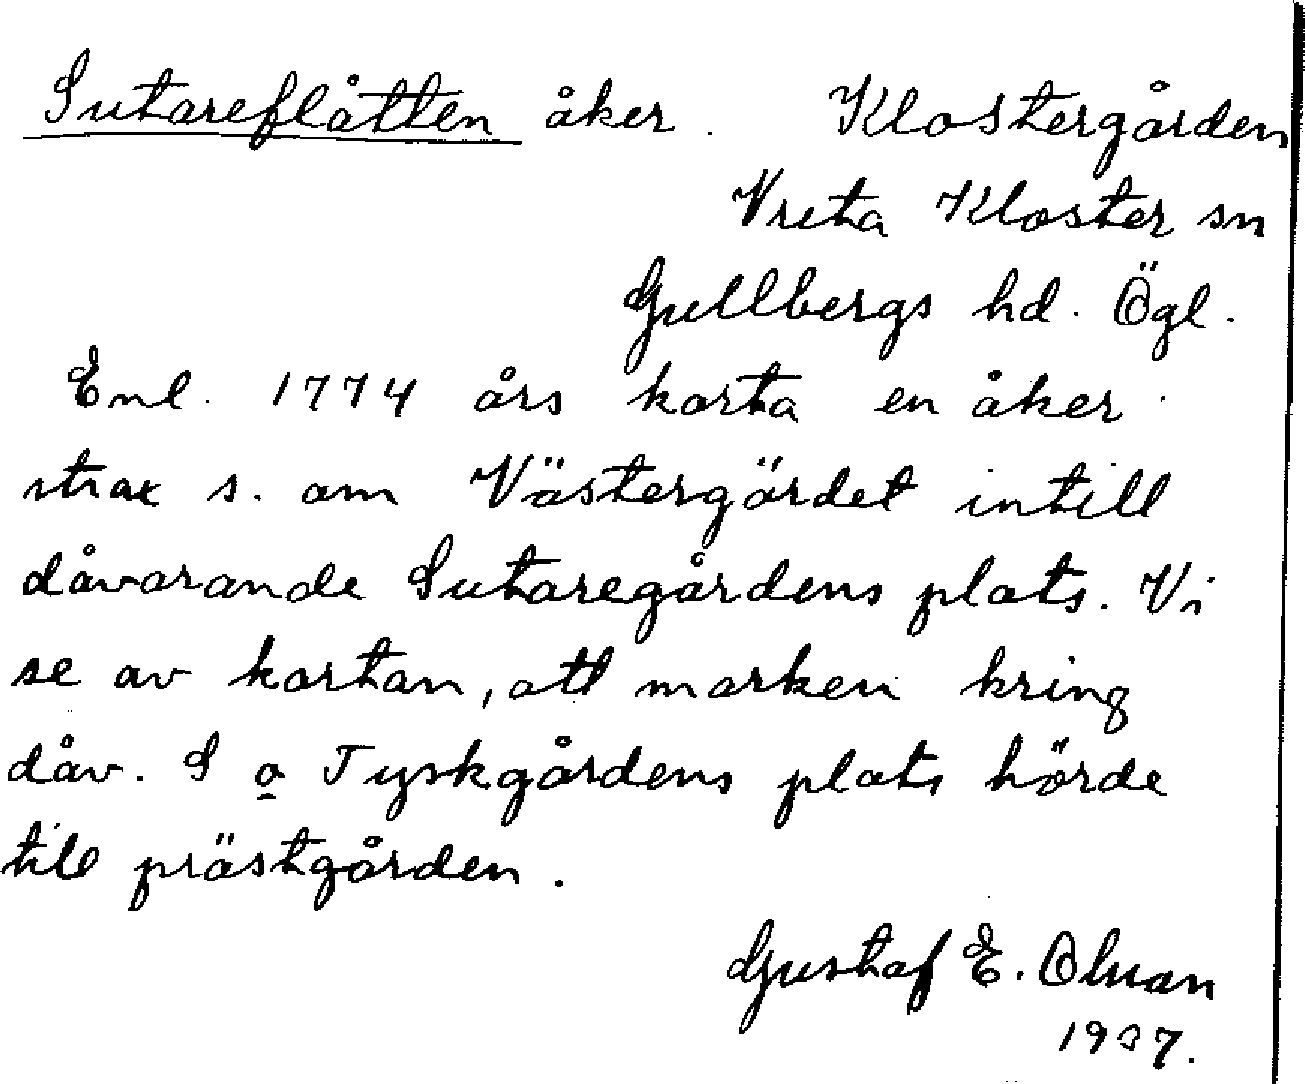 Sutareflåtten åker. Klostergården
Vreta Kloster sn
Gullbergs hd. Ögl.
Enl. 1774 års karta en åker
strax s. om Västergärdet intill
dåvarande Sutaregårdens plats. Vi
se av kartan, att marken kring
dåv. S o Tyskgårdens plats hörde
till prästgården.
Gustaf E. Olsson
1937.